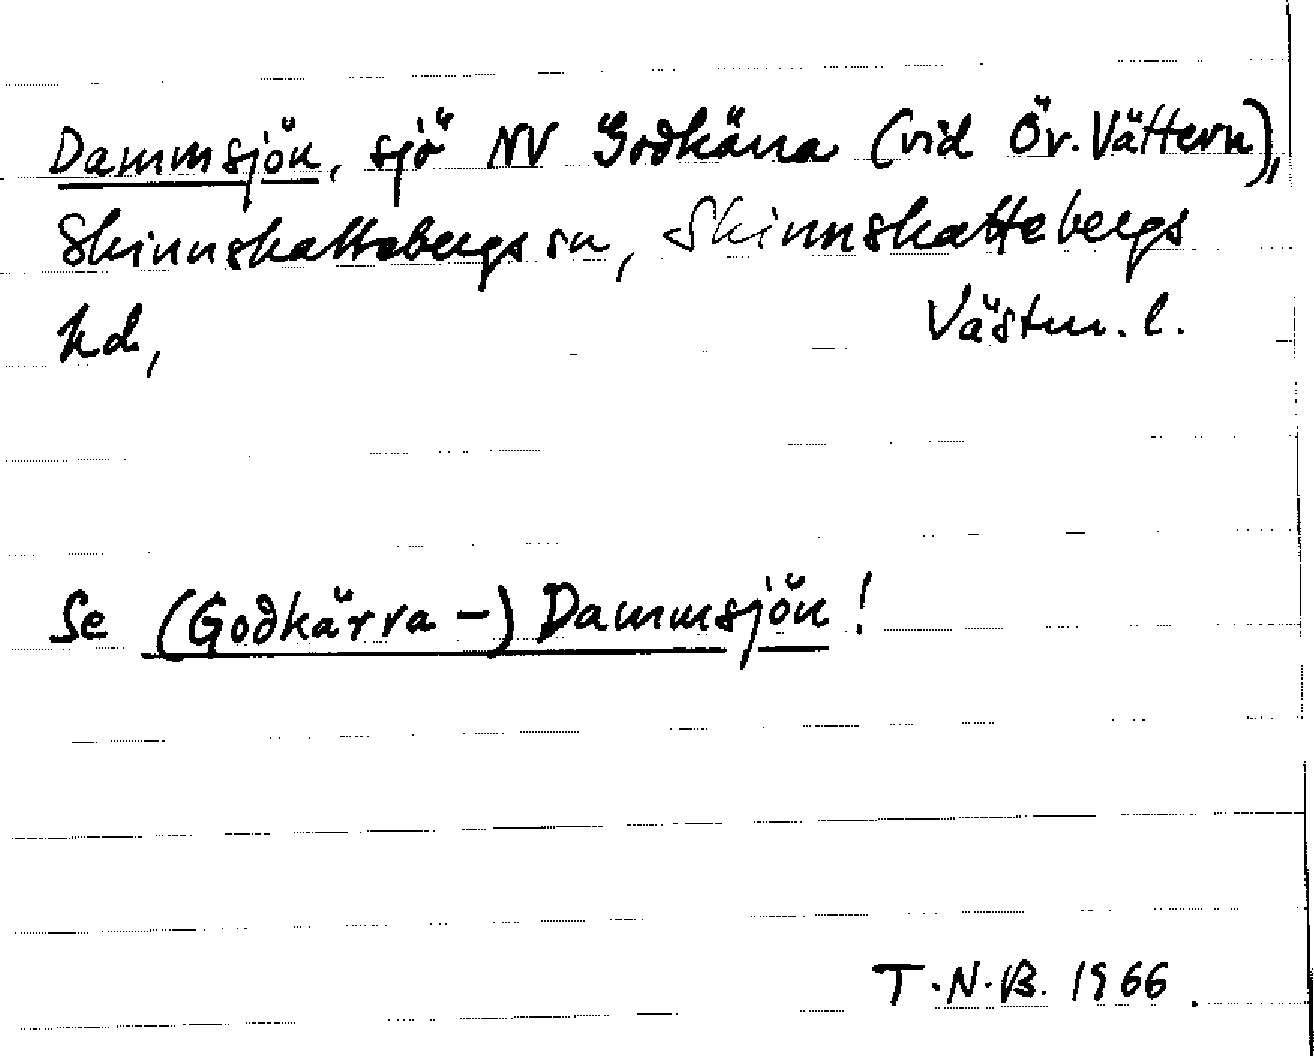 Dammsjön, sjö NV Godkärra (vid Öv. Vättern),
Skinnskattebergs sn, Skinnskattebergs
hd, Västm. l.
Se (Godkärra-) Dammsjön!
T.N.B. 1966.